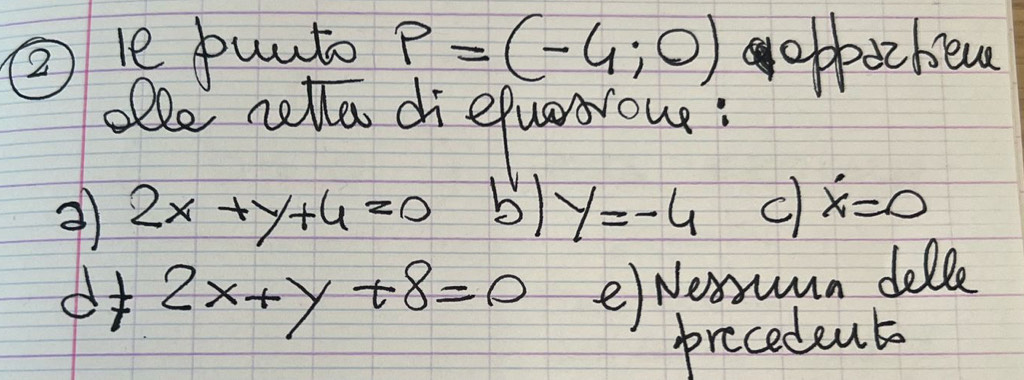 ② Il punto P = (-4; 0) appartiene
alla retta di equazione:
a) 2x + y + 4 = 0 b) y = -4 c) x = 0
d) 2x + y + 8 = 0 e) Nessuna delle
precedenti